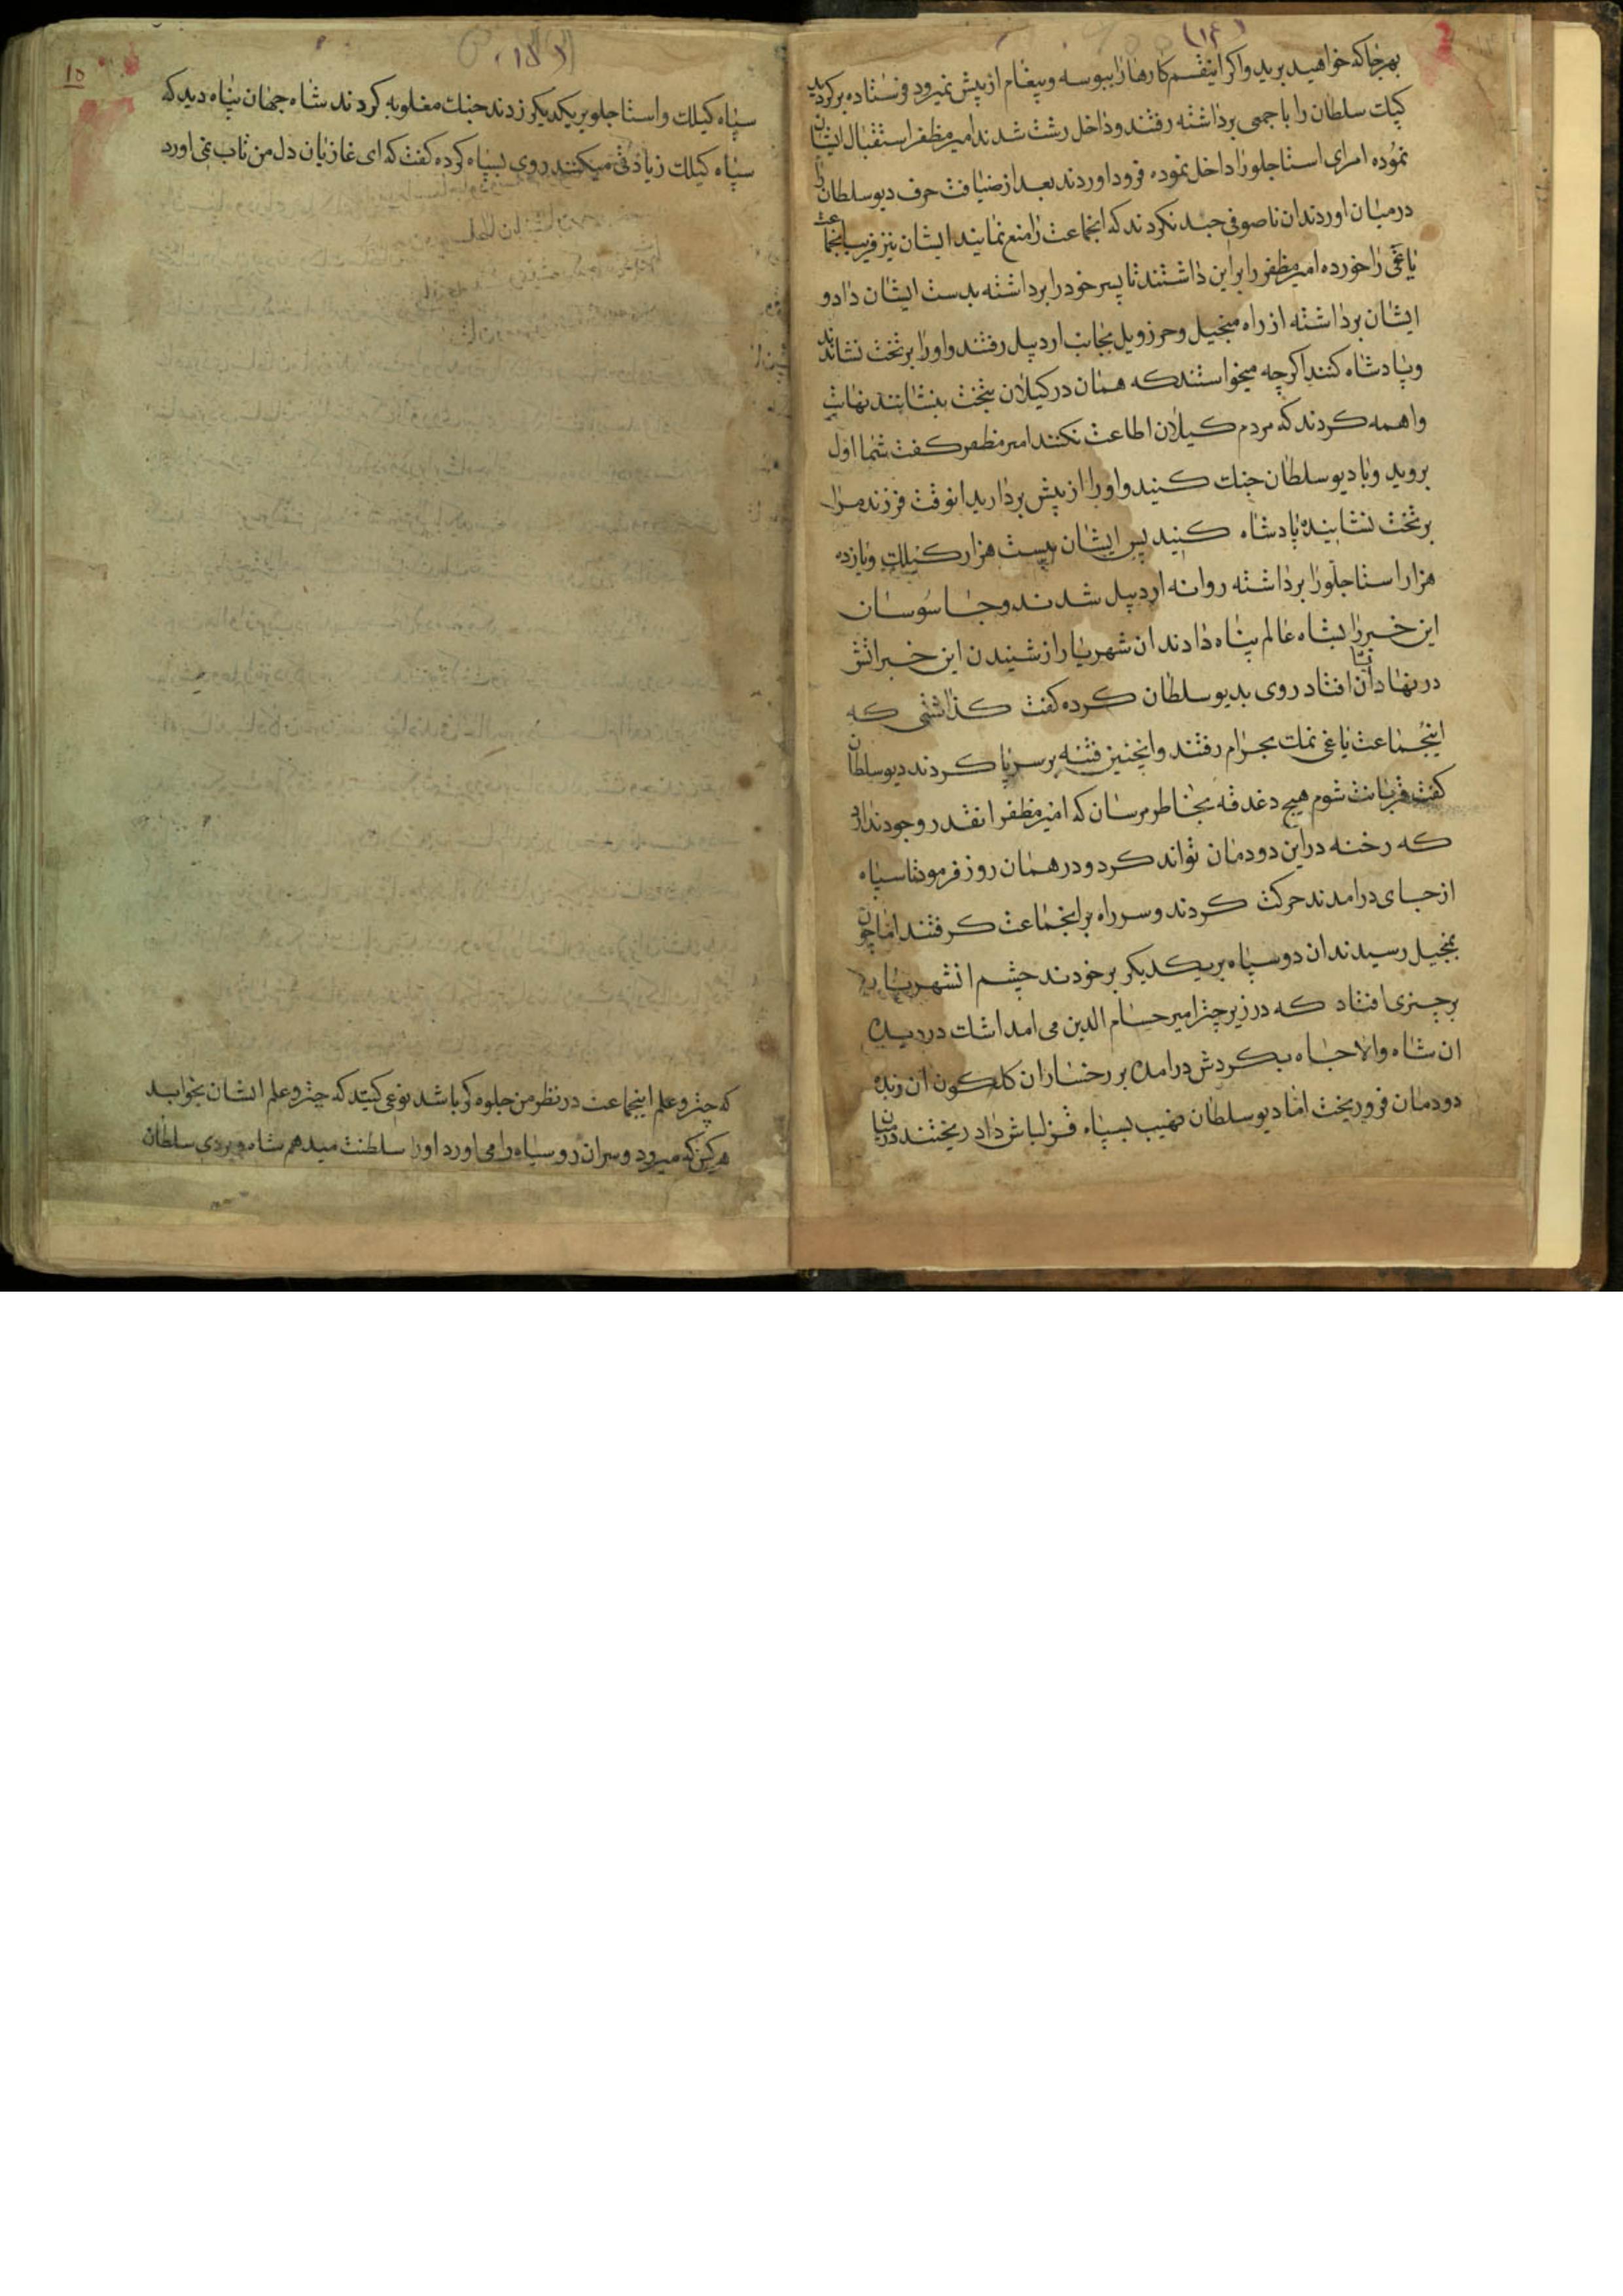 (۱۴)
بهرجا که خواهید برید واکر اینقسم کارها را ببوسه وپیغام از پیش نمیرود فرستاده برکردید
کپک سلطان را با جمعی برداشته رفتند وداخل رشت شدند امیر مظفر استقبال ایشان
نموده امرای استاجلو را داخل نموده فرود اوردند بعد از ضیافت حرف دیو سلطان را
درمیان اوردند ان ناصوفی چند نکردند که انجماعت را منع نمایند ایشان نیز فریب انجماعت
یاغی را خورده امیر مظفر را بر این داشتند تا پسر خود را برداشته بدست ایشان داد و
ایشان برداشته از راه منجیل وحرزویل بجانب اردبیل رفتند واورا برتخت نشانند
وپادشاه کنند اکرچه میخواستند که همان در کیلان بتخت بنشانند نهایت
واهمه کردند که مردم کیلان اطاعت نکنند امیر مظفر کفت شما اول
بروید وبا دیو سلطان جنک کنید واورا از پیش بردارید انوقت فرزند مرا
برتخت نشانیده پادشاه کنید پس ایشان بیست هزار کیلک ویازده
هزار استاجلو را برداشته روانه اردبیل شدند وجاسوسان
این خبر را بشاه عالم پناه دادند ان شهریار از شنیدن این خبر اتش
در نهادش افتاد روی بدیو سلطان کرده کفت کذاشتی که
اینجماعت یاغی نمک بحرام رفتند واینچنین فتنه بر سر پا کردند دیو سلطان
کفت قربانت شوم هیچ دغدغه بخاطر مرسان که امیر مظفر انقدر وجود ندارد
که رخنه در این دودمان تواند کرد ودر همان روز فرمود تا سپاه
از جای درامدند حرکت کردند وسر راه بر انجماعت کرفتند اما چون
بمنجیل رسیدند ان دو سپاه بر یکدیکر برخوردند چشم انشهریار
بر چتری افتاد که در زیر چتر امیر حسام الدین می امد اشک در دیده
ان شاه والاجاه بکردش درامده بر رخساران کلکون ان زبده
دودمان فرو ریخت اما دیو سلطان نهیب بسپاه قزلباش داد ریختند درمیان
(۱۵)
۱۵
سپاه کیلک واستاجلو بر یکدیکر زدند جنک مغلوبه کردند شاه جهان پناه دید که
سپاه کیلک زیادتی میکنند روی بسپاه کرده کفت که ای غازیان دل من تاب نمی اورد
که چتر وعلم اینجماعت در نظر من جلوه کر باشد نوعی کنید که چتر وعلم ایشان بخوابد
هر کس که میرود وسر ان روسیاه را می اورد اورا سلطنت میدهم شاه ویردی سلطان